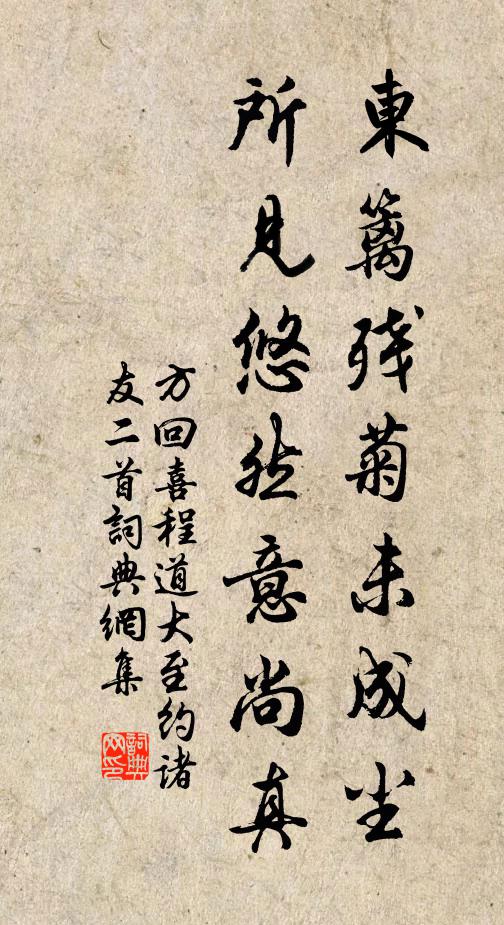 東籬残菊未成尘
所見悠然意尚真
方回喜程道大至約諸
友二首詞典網集
詞典
网印